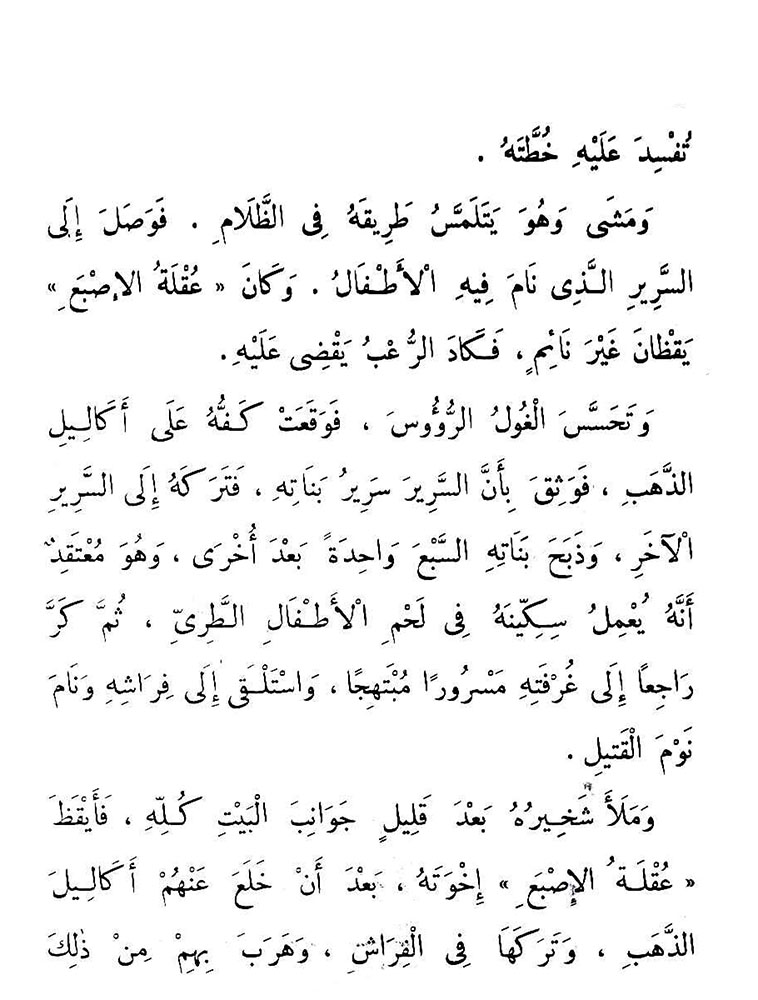 تُفْسِدَ عَلَيْهِ خُطَّتَهُ .
وَمَشَى وَهُوَ يَتَلَمَّسُ طَرِيقَهُ فِى الظَّلَامِ . فَوَصَلَ إِلَى
السَّرِيرِ الَّذِى نَامَ فِيهِ الْأَطْفَالُ . وَكَانَ « عُقْلَةُ الإِصْبَعِ »
يَقْظَانَ غَيْرَ نَائِمٍ ، فَكَادَ الرُّعْبُ يَقْضِى عَلَيْهِ .
وَتَحَسَّسَ الْغُولُ الرُّؤُوسَ ، فَوَقَعَتْ كَفُّهُ عَلَى أَكَالِيلِ
الذَّهَبِ ، فَوَثِقَ بِأَنَّ السَّرِيرَ سَرِيرُ بَنَاتِهِ ، فَتَرَكَهُ إِلَى السَّرِيرِ
الْآخَرِ ، وَذَبَحَ بَنَاتِهِ السَّبْعَ وَاحِدَةً بَعْدَ أُخْرَى ، وَهُوَ مُعْتَقِدٌ
أَنَّهُ يُعْمِلُ سِكِّينَهُ فِى لَحْمِ الْأَطْفَالِ الطَّرِىِّ ، ثُمَّ كَرَّ
رَاجِعًا إِلَى غُرْفَتِهِ مَسْرُورًا مُبْتَهِجًا ، وَاسْتَلْقَى إِلَى فِرَاشِهِ وَنَامَ
نَوْمَ الْقَتِيلِ .
وَمَلَأَ شَخِيرُهُ بَعْدَ قَلِيلٍ جَوَانِبَ الْبَيْتِ كُلِّهِ ، فَأَيْقَظَ
« عُقْلَةُ الإِصْبَعِ » إِخْوَتَهُ ، بَعْدَ أَنْ خَلَعَ عَنْهُمْ أَكَالِيلَ
الذَّهَبِ ، وَتَرَكَهَا فِى الْفِرَاشِ ، وَهَرَبَ بِهِمْ مِنْ ذٰلِكَ